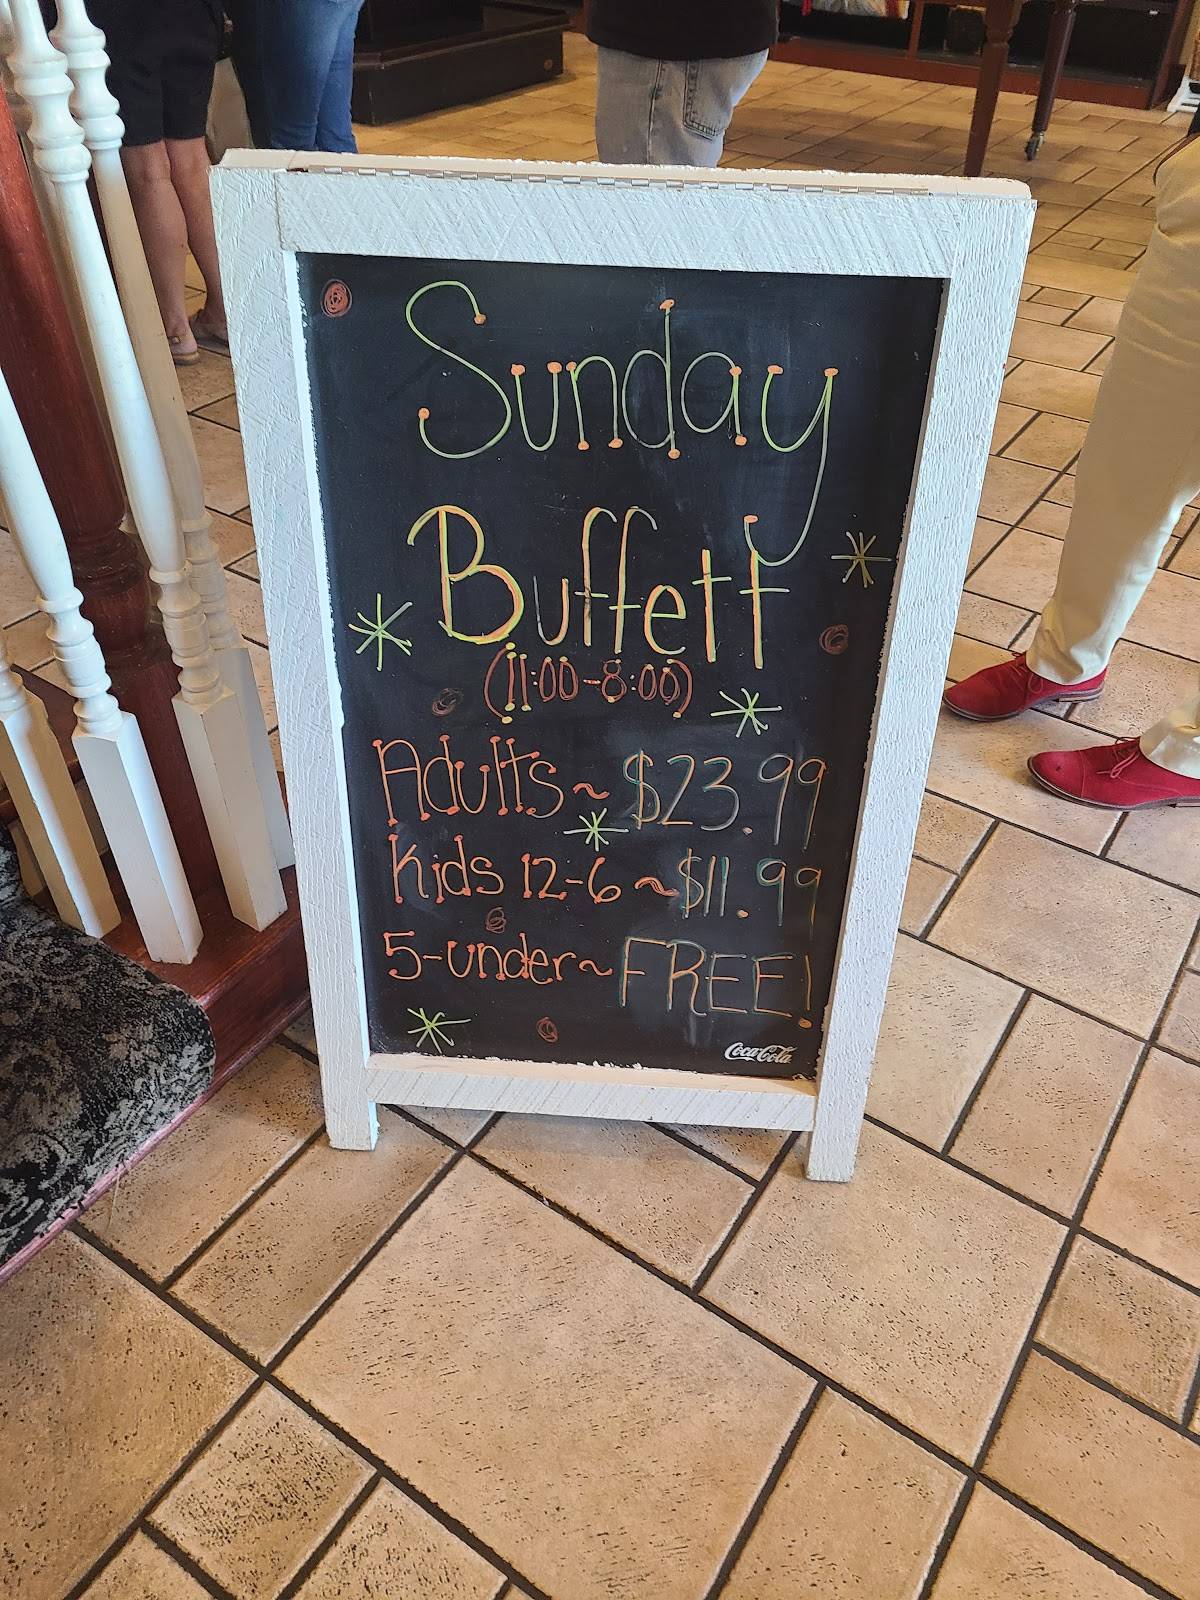 Sunday
Buffett
(11:00-8:00)
Adults~ $23.99
Kids 12-6 ~ $11.99
5-under~ FREE!
Coca-Cola